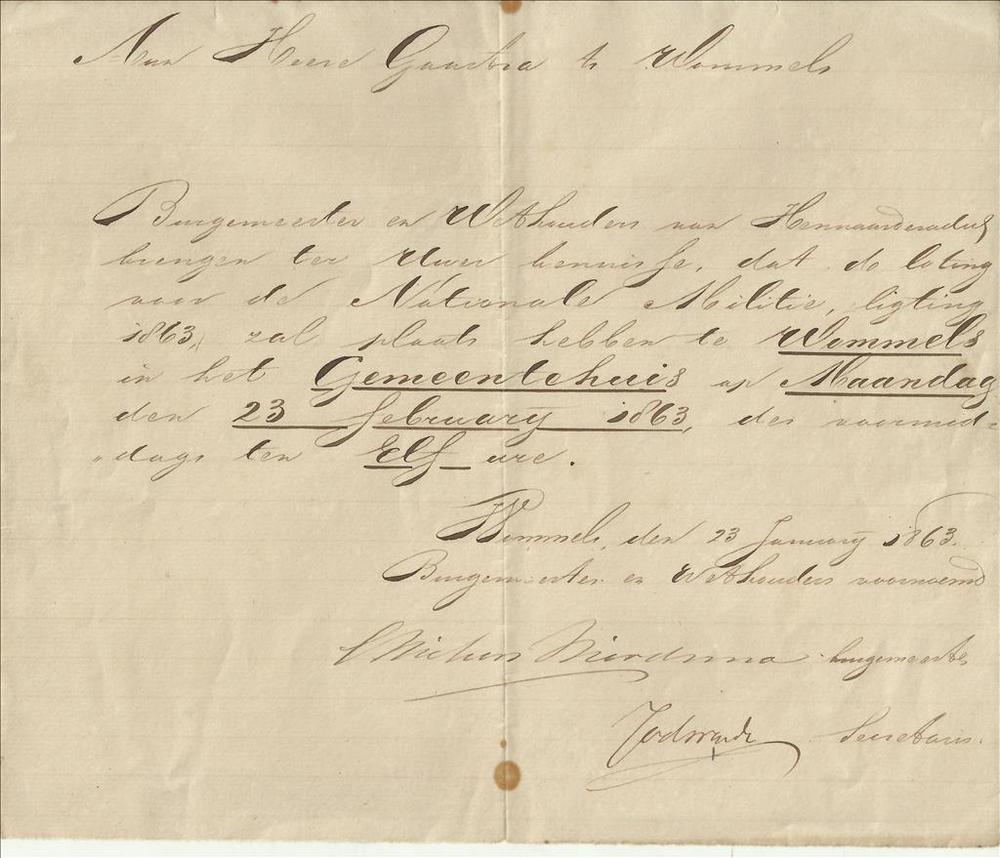 Aan Heere Gaastra te Wommels
Burgemeester en Wethouders van Hennaarderadeel
brengen ter Uwer kennisse, dat de loting
voor de Nationale Militie, ligting
1863, zal plaats hebben te Wommels
in het Gemeentehuis op Maandag
den 23 february 1863, des voormid=
„dags ten Elf ure.
Wommels, den 23 January 1863.
Burgemeester en Wethouders voornoemd
burgemeester
Secretaris.